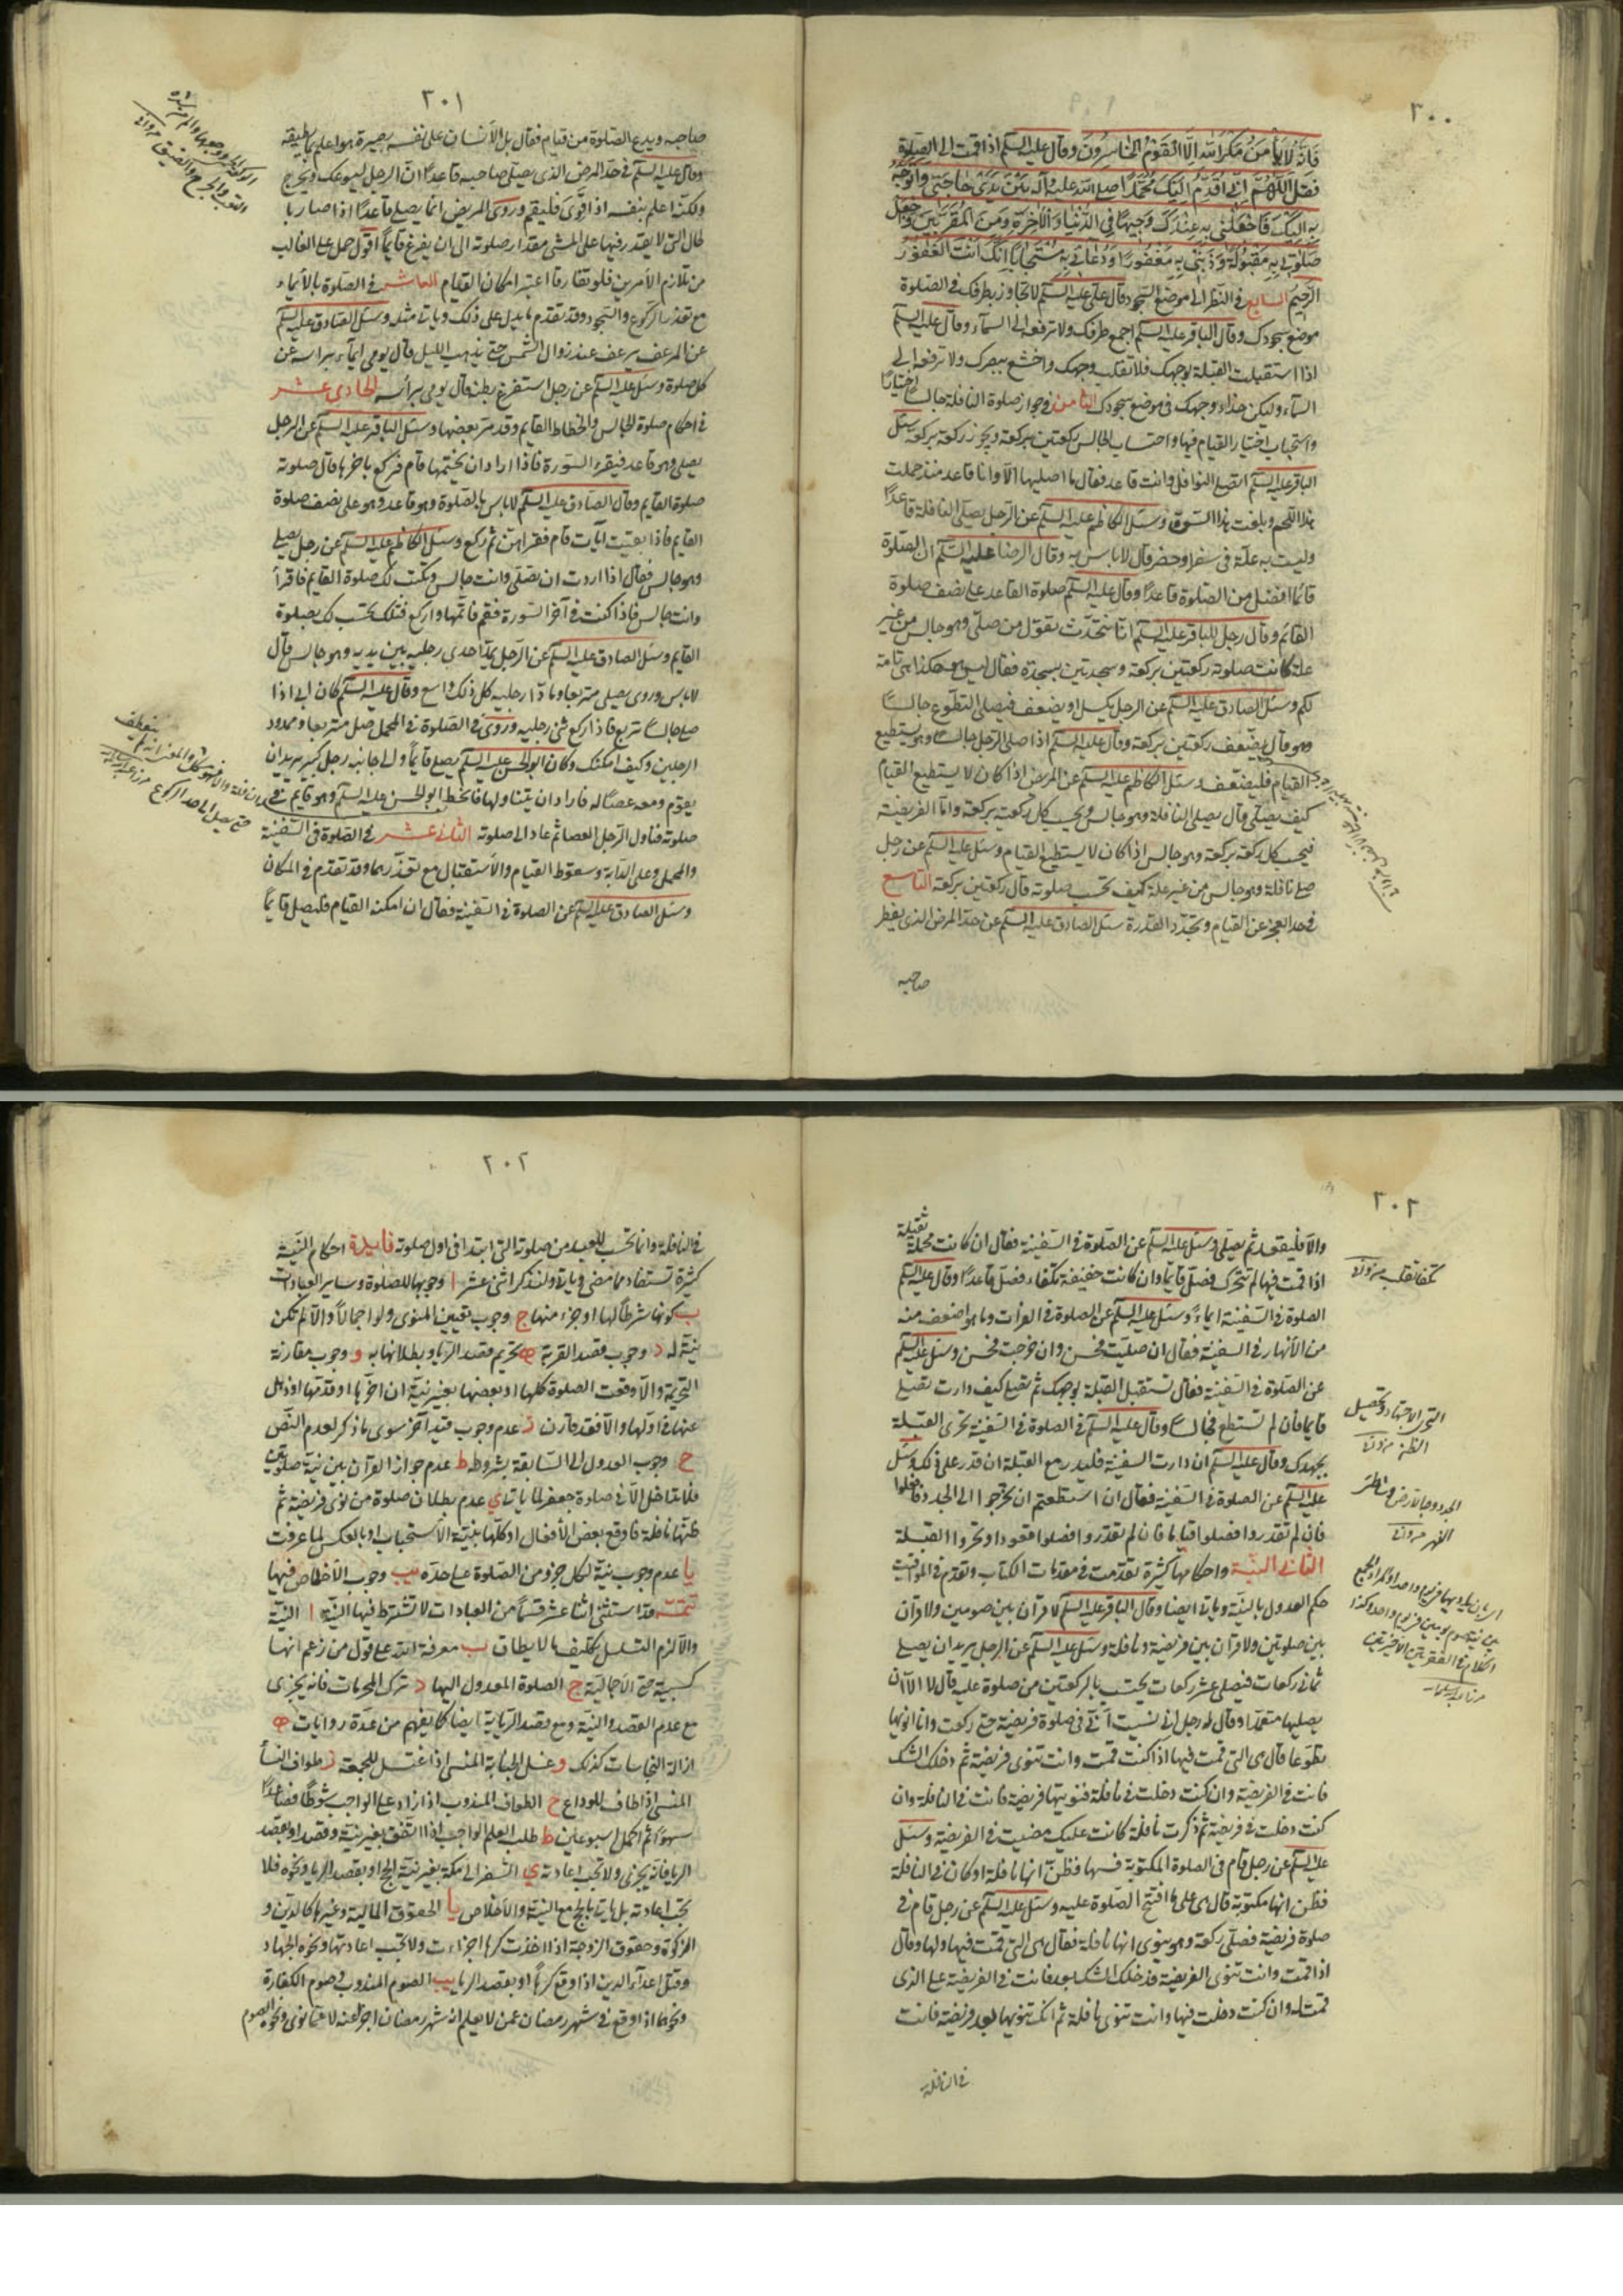 ٣٠٠
فَإِنَّهُ لَا يَأْمَنُ مَكْرَ اللهِ إِلَّا الْقَوْمُ الْخَاسِرُونَ وقال عليه السلم اذا قمت الى الصلوة
فقل اَللّهُمَّ اِنّي اُقَدِّمُ اِلَيْكَ مُحَمَّدًا صلى الله عليه وآله بَيْنَ يَدَيْ حَاجَتي وَاَتَوَجَّهُ
بِهِ اِلَيْكَ فَاجْعَلْني بِهِ عِنْدَكَ وَجيهًا فِي الدُّنْيَا وَالْآخِرَةِ وَمِنَ الْمُقَرَّبينَ وَاجْعَلْ
صَلوتي بِهِ مَقْبُولَةً وَذَنْبي بِهِ مَغْفُورًا وَدُعَائي بِهِ مُسْتَجَابًا اِنَّكَ اَنْتَ الْغَفُورُ
الرَّحيمُ السابع في النظر الى موضع السجود قال علي عليه السلم لا تجاوز بطرفك في الصلوة
موضع سجودك وقال الباقر عليه السلم اجمع طرفك ولا ترفعه الى السماء وقال عليه السلم
اذا استقبلت القبلة بوجهك فلا تقلب وجهك واخشع ببصرك ولا ترفعه الى
السماء وليكن حذاء وجهك في موضع سجودك الثامن في جواز صلوة النافلة جالسا اختيارًا
واستحباب اختيار القيام فيها واحتساب الجالس ركعتين بركعة ويجوز ركعة بركعة سئل
الباقر عليه السلم اتصلي النوافل وانت قاعد فقال ما اصليها الا وانا قاعد منذ حملت
هذا اللحم وبلغت هذا السن وسئل الكاظم عليه السلم عن الرجل يصلي النافلة قاعدًا
وليست به علة في سفر او حضر قال لا باس به وقال الرضا عليه السلم ان الصلوة
قائما افضل من الصلوة قاعدًا وقال عليه السلم صلوة القاعد على نصف صلوة
القائم وقال رجل للباقر عليه السلم انا نتحدث نقول من صلى وهو جالس من غير
علة كانت صلوته ركعتين بركعة وسجدتين بسجدة فقال ليس هو هكذا هي تامة
لكم وسئل الصادق عليه السلم عن الرجل يكسل او يضعف فيصلي التطوع جالسًا
وهو قال يضعف ركعتين بركعة وقال عليه السلم اذا صلى الرجل جالسًا وهو يستطيع
القيام فليضعف وسئل الكاظم عليه السلم عن المريض اذا كان لا يستطيع القيام
كيف يصلي قال يصلي النافلة وهو جالس ويحسب كل ركعتين بركعة واما الفريضة
فيحسب كل ركعة بركعة وهو جالس اذا كان لا يستطيع القيام وسئل عليه السلم عن رجل
صلى نافلة وهو جالس من غير علة كيف تحتسب صلوته قال ركعتين بركعة التاسع
في حد العجز عن القيام وتجدد القدرة سئل الصادق عليه السلم عن حد المرض الذي يفطر
صاحبه
٣٠١
صاحبه ويدع الصلوة من قيام فقال بل الانسان على نفسه بصيرة هو اعلم بما يطيقه
وقال عليه السلم في حد المرض الذي يصلي صاحبه قاعدًا ان الرجل ليوعك ويحرج
ولكنه اعلم بنفسه اذا قوي فليقم وروي المريض انما يصلي قاعدًا اذا صار بالـ
ـحال التي لا يقدر فيها على المشي مقدار صلوته الى ان يفرغ قايمًا اقول حمل على الغالب
من تلازم الامرين فلو تفارقا اعتبر امكان القيام العاشر في الصلوة بالايماء
مع تعذر الركوع والسجود وقد تقدم ما يدل على ذلك وياتي مثله وسئل الصادق عليه السلم
عن المرعف يرعف عند زوال الشمس حتى يذهب الليل قال يومي ايماء براسه عن
كل صلوة وسئل عليه السلم عن رجل استفرغ بطنه قال يومي براسه الحادي عشر
في احكام صلوة الجالس وانحطاط القايم وقد مر بعضها وسئل الباقر عليه السلم عن الرجل
يصلي وهو قاعد فيقرء السورة فاذا اراد ان يختمها قام فركع باخرها قال صلوته
صلوة القايم وقال الصادق عليه السلم لا باس بالصلوة وهو قاعد وهو على نصف صلوة
القايم فاذا بقيت آيات قام فقراهن ثم ركع وسئل الكاظم عليه السلم عن رجل يصلي
وهو جالس فقال اذا اردت ان تصلي وانت جالس وتكتب لك صلوة القايم فاقرأ
وانت جالس فاذا كنت في آخر السورة فقم فاتمها واركع فتلك تحسب لك بصلوة
القايم وسئل الصادق عليه السلم عن الرجل يمد احدى رجليه بين يديه وهو جالس قال
لا باس وروي يصلي متربعا ومادًا رجليه كل ذلك واسع وقال عليه السلم كان ابي اذا
صلى جالسًا تربع فاذا ركع ثنى رجليه وروي في الصلوة في المحمل صل متربعا وممدود
الرجلين وكيف امكنك وكان ابو الحسن عليه السلم يصلي قايمًا والى جانبه رجل كبير يريد ان
يقوم ومعه عصًا له فاراد ان يتناولها فانحط ابو الحسن عليه السلم وهو قايم في
صلوته فناول الرجل العصا ثم عاد الى صلوته الثاني عشر في الصلوة في السفينة
والمحمل وعلى الدابة وسقوط القيام والاستقبال مع تعذرهما وقد تقدم في المكان
وسئل الصادق عليه السلم عن الصلوة في السفينة فقال ان امكنه القيام فليصل قايمًا
٣٠٢
والا فليقعد ثم يصلي وسئل عليه السلم عن الصلوة في السفينة فقال ان كانت محملة ثقيلة
اذا قمت فيها لم تتحرك فصل قايمًا وان كانت خفيفة تكفأ فصل قاعدًا وقال عليه السلم
الصلوة في السفينة ايماء وسئل عليه السلم عن الصلوة في الفرات وما هو اضعف منه
من الانهار في السفينة فقال ان صليت فحسن وان خرجت فحسن وسئل عليه السلم
عن الصلوة في السفينة فقال تستقبل القبلة بوجهك ثم تصلي كيف دارت تصلي
قايما فان لم تستطع فجالسًا وقال عليه السلم في الصلوة في السفينة تحرى القبلة
بجهدك وقال عليه السلم ان دارت السفينة فليدر مع القبلة ان قدر على ذلك وسئل
عليه السلم عن الصلوة في السفينة فقال ان استطعتم ان تخرجوا الى الجدد فافعلوا
فان لم تقدروا فصلوا قياما فان لم تقدروا فصلوا قعودا وتحروا القبلة
الثاني النية واحكامها كثيرة تقدمت في مقدمات الكتاب وتقدم في المواقيت
حكم العدول بالنية وياتي ايضا وقال الباقر عليه السلم لا قران بين صومين ولا قران
بين صلوتين ولا قران بين فريضة ونافلة وسئل عليه السلم عن الرجل يريد ان يصلي
ثماني ركعات فيصلي عشر ركعات يحتسب بالركعتين من صلوة عليه قال لا الا ان
يصليها متعمدًا وقال له رجل اني نسيت اني في صلوة فريضة حتى ركعت وانا انويها
تطوعا قال هي التي قمت فيها اذا كنت قمت وانت تنوي فريضة ثم دخلك الشك
فانت في الفريضة وان كنت دخلت في نافلة فنويتها فريضة فانت في النافلة وان
كنت دخلت في فريضة ثم ذكرت نافلة كانت عليك مضيت في الفريضة وسئل
عليه السلم عن رجل قام في الصلوة المكتوبة فسها فظن انها نافلة او كان في النافلة
فظن انها مكتوبة قال هي على ما افتتح الصلوة عليه وسئل عليه السلم عن رجل قام في
صلوة فريضة فصلى ركعة وهو ينوي انها نافلة فقال هي التي قمت فيها ولها وقال
اذا قمت وانت تنوي الفريضة فدخلك الشك بعد فانت في الفريضة على الذي
قمت له وان كنت دخلت فيها وانت تنوي نافلة ثم انك تنويها بعد فريضة فانت
في النافلة
تكفأ تقلب
التحري الاجتهاد وتحصيل
الظن
٣٠٢
في النافلة وانما تحتسب للعبد من صلوته التي ابتدا في اول صلوته فايدة احكام النية
كثيرة تستفاد مما مضى وياتي ولنذكر اثنى عشر ا وجوبها للصلوة وساير العبادات
ب كونها شرطًا لها او جزء منها ج وجوب تعيين المنوي ولو اجمالًا والا لم تكن
نية له د وجوب قصد القربة ه تحريم قصد الريا وبطلانها به و وجوب مقارنة
التحريمة والا وقعت الصلوة كلها او بعضها بغير نية ان اخرها او قدمها وذهل
عنها في اولها والا فقد قارن ز عدم وجوب قيد آخر سوى ما ذكر لعدم النص
ح وجوب العدول الى السابقة بشروطه ط عدم جواز القرآن بين نية صلوتين
فلا تداخل الا في صلوة جعفر لما ياتي ي عدم بطلان صلوة من نوى فريضة ثم
ظنها نافلة فاوقع بعض الافعال او كلها بنية الاستحباب او بالعكس لما عرفت
يا عدم وجوب نية لكل جزء من الصلوة على حدة يب وجوب الاخلاص فيها
تتمة قد استثني اثنا عشر قسمًا من العبادات لا تشترط فيها النية ا النية
والا لزم التسلسل وتكليف ما لا يطاق ب معرفة الله على قول من زعم انها
كسبية حتى الاجالية ج الصلوة المعدول اليها د ترك المحرمات فانه يجزى
مع عدم القصد والنية ومع قصد الرياية ايضا كما يفهم من عدة روايات ه
ازالة النجاسات كذلك و غسل الجنابة المنسي اذا اغتسل للجمعة ز طواف النسا
المنسي اذا طاف للوداع ح الطواف المندوب اذا زاد على الواجب شوطًا فصاعدًا
سهوًا ثم اكمل اسبوعين ط طلب العلم الواجب اذا اتفق بغير نية وقصد او بقصد
الريا فانه يجزى ولا تجب اعادته ي السفر الى مكة بغير نية الحج او بقصد الريا ونحوه فلا
تجب اعادته بل ياتي بالحج مع النية والاخلاص يا الحقوق المالية وغيرها كالدين و
الزكوة وحقوق الزوجة اذا اخذت كرها اجزءت ولا تجب اعادتها ونحوه الجهاد
وقتل اعداء الدين اذا وقع كرهًا او بقصد الريا يب الصوم المندوب وصوم الكفارة
ونحوهما اذا وقع في شهر رمضان عمن لا يعلم انه شهر رمضان اجزأ عنه لا عما نوى ونحوه الصوم